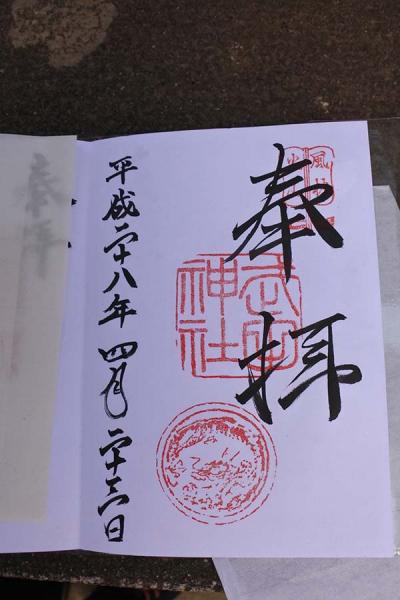 奉拝
神社
平成二十八年四月二十三日